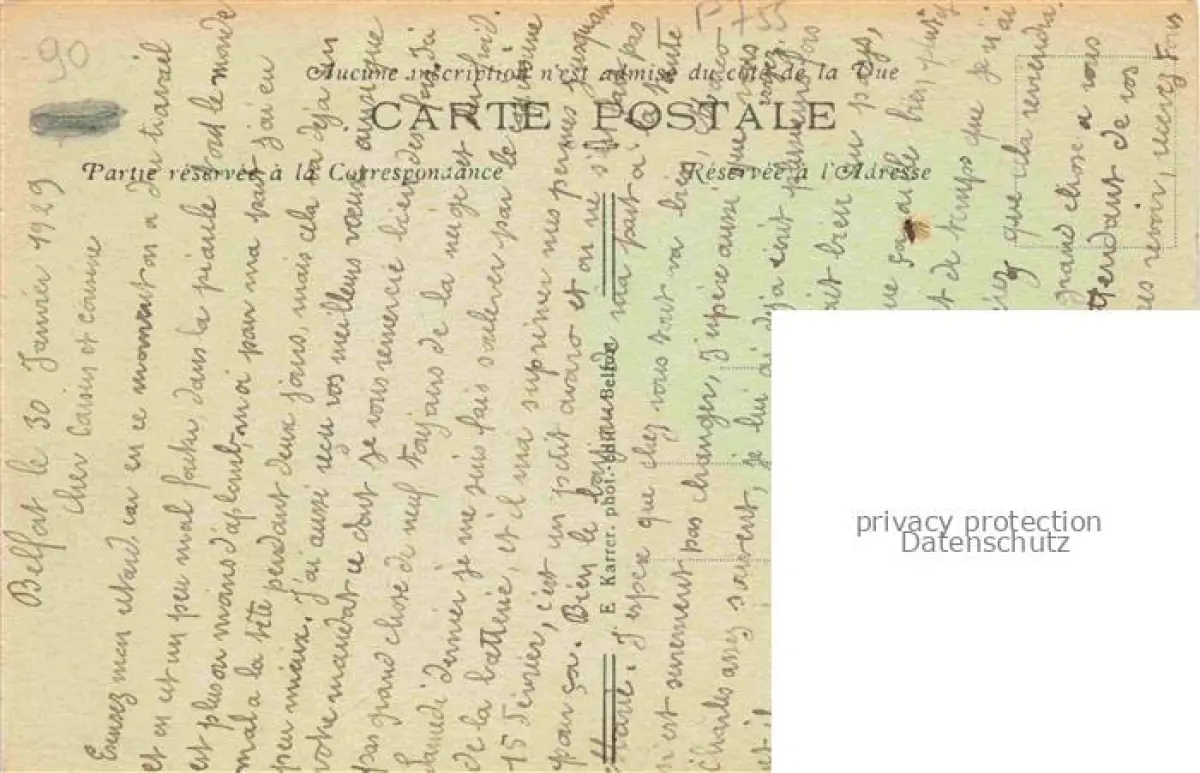 90
F 755
Aucune inscription n'est admise du coté de la Vue
CARTE POSTALE
Partie réservée à la Correspondance
Réservée à l'Adresse
E. Karrer. phot.-édit. Belfort
Belfort le 30 Janvier 1929
Cher Cousin et cousine
Excusez mon retard car en ce moment on a du travail
et on est un peu mal foutu, dans la piaule tout le monde
est plus ou moins d'aplomb, moi pour ma part j'ai eu
mal a la tête pendant deux jours, mais cela va déja un
peu mieux. J'ai aussi reçu vos meilleurs vœux ainsi que
votre mandat ce dont je vous remercie bien des fois. J'ai
pas grand chose de neuf toujours de la neige et du froid.
Samedi dernier je me suis fais soulever par le capitaine
de la batterie, et il m'a suprimer mes permes jusqu'au
15 février, c'est un petit avaro et on ne s'en fait pas
pour ça. Bien le
J'espère que chez vous tout va bien,
n'est surement pas changer, J'espère aussi que vous
Charles assez souvent, je lui ai déja écrit plusieurs fois
et il
bien au pays,
bien
de temps que je n'ai
que cela reviendra.
grand chose a vous
attendant de vos
revoir, recevez tous
privacy protection
Datenschutz